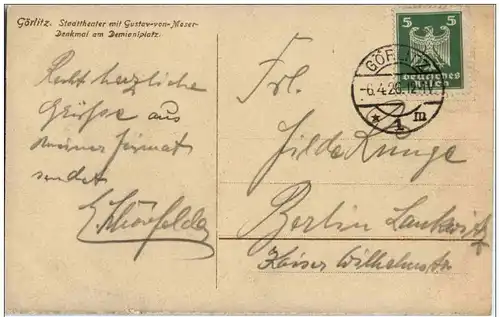 Görlitz. Stadttheater mit Gustav-von-Moser-
Denkmal am Demianiplatz.
Recht herzliche
Grüße aus
meiner Heimat
sendet
5 5
Deutsches
Reich
GÖRLITZ
-6.4.26.12-1N.
* 1 m
Frl.
Hilde Runge
Berlin Lankwitz
Kaiser Wilhelmstr